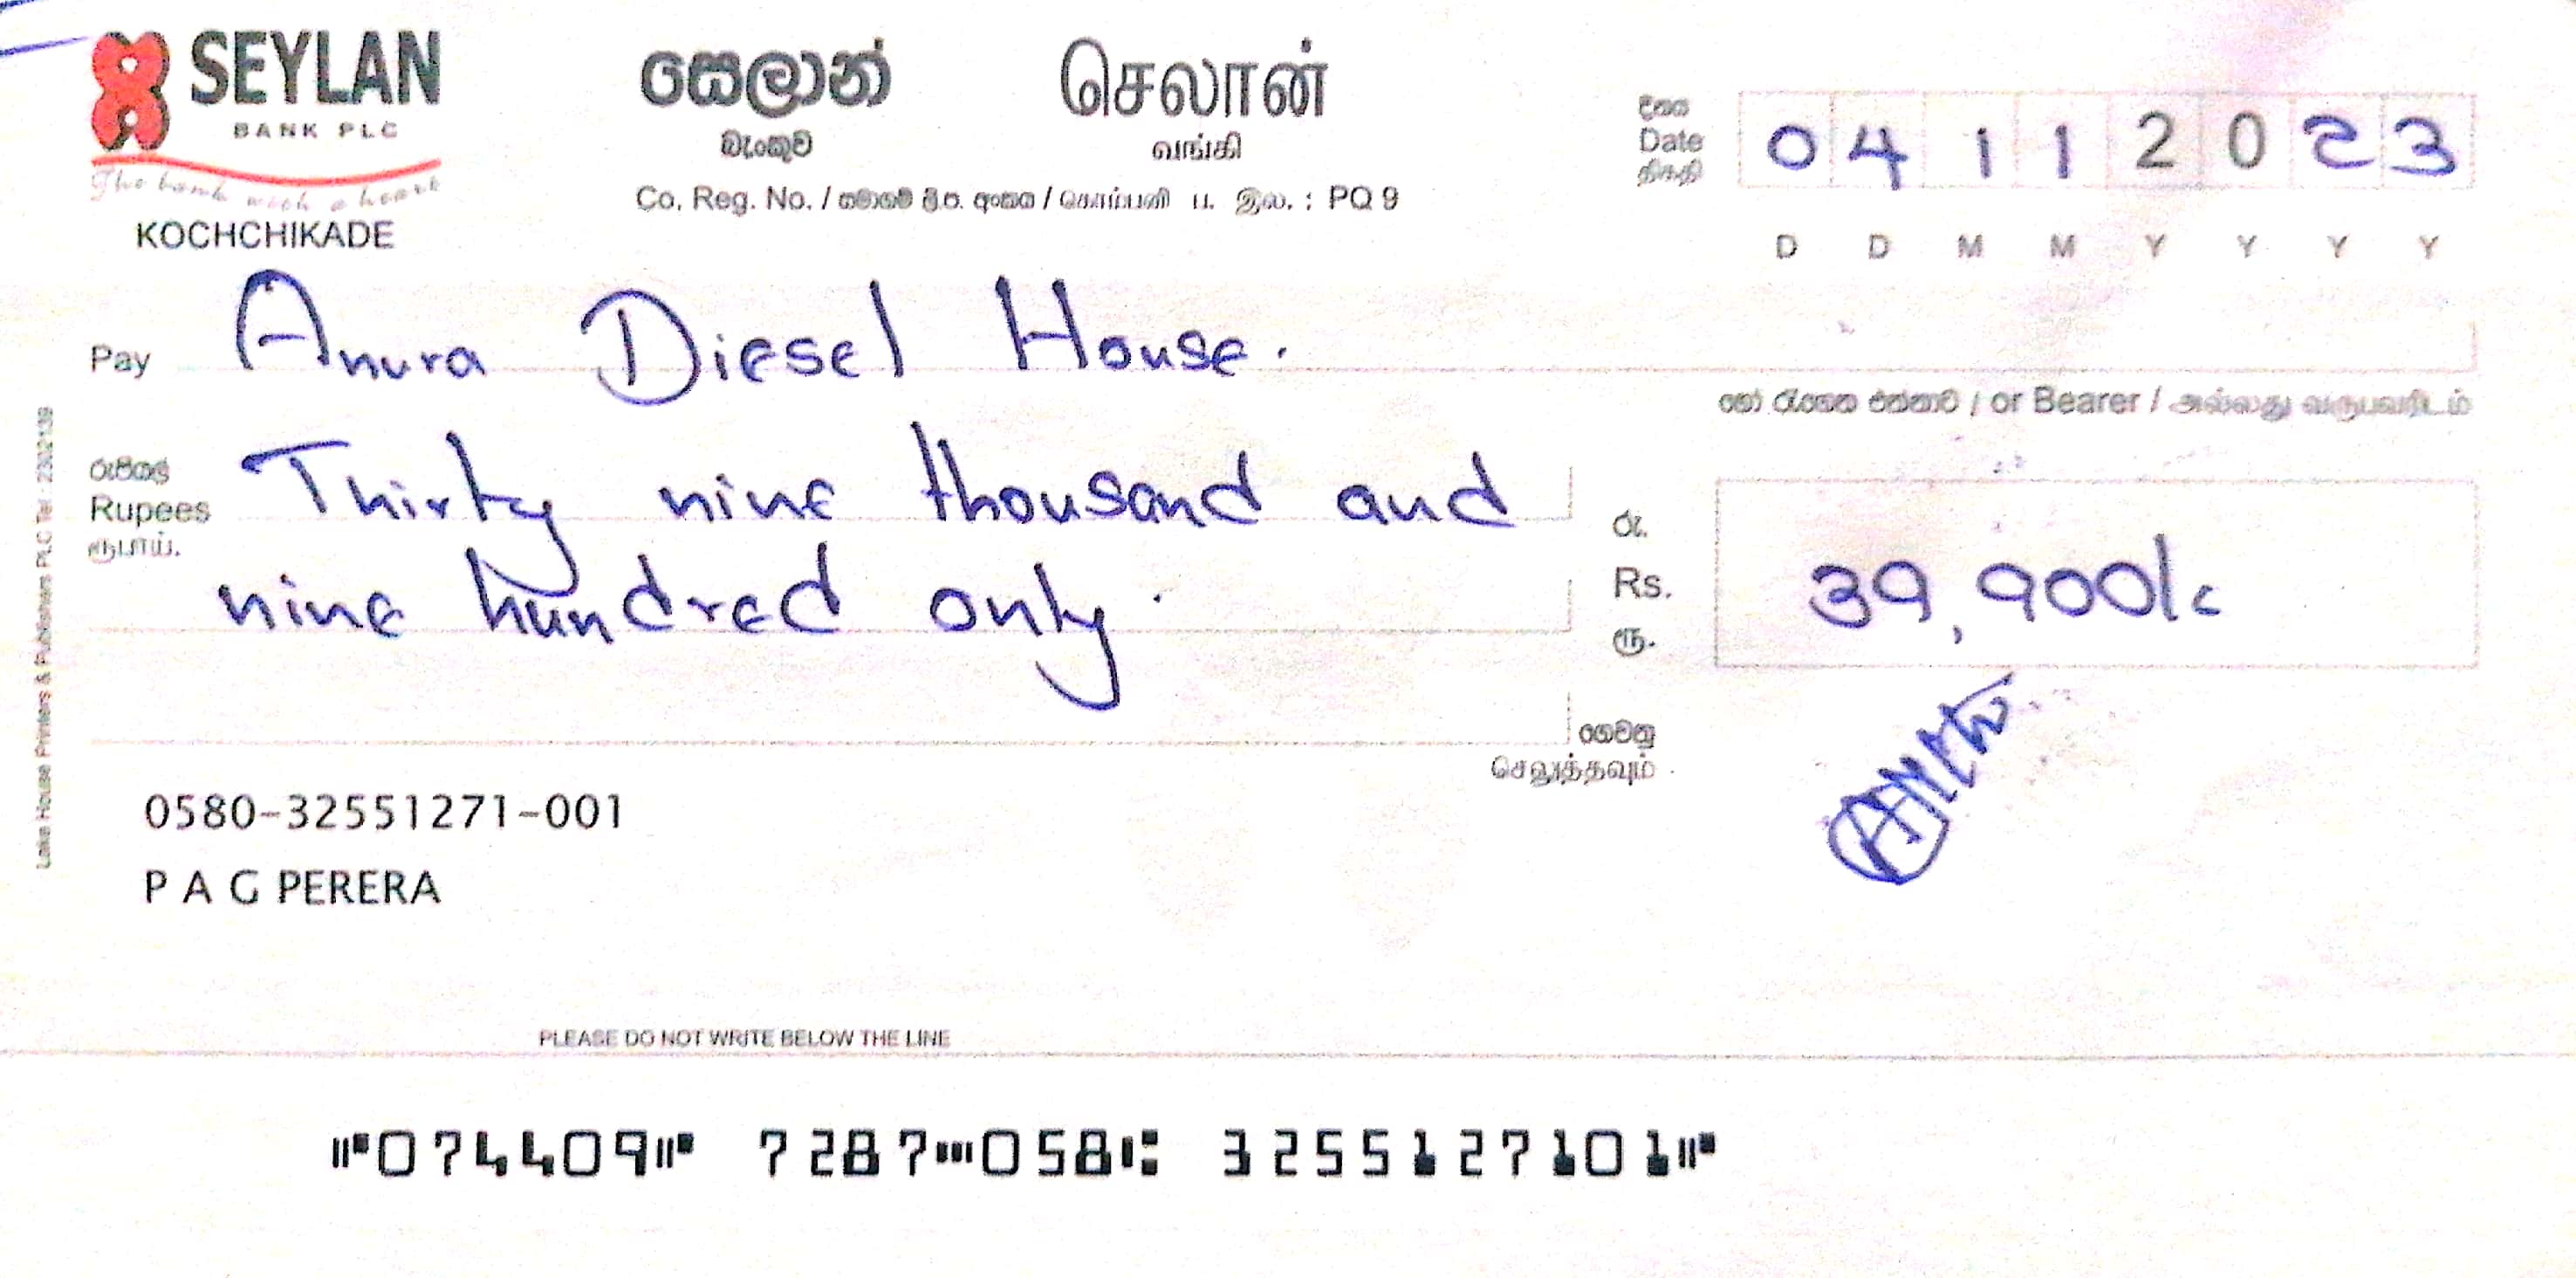 SEYLAN
BANK PLC
The bank with a heart
KOCHCHIKADE
සෙලාන්
බැංකුව
செலான்
வங்கி
Co. Reg. No. / සමාගම් ලි.ප. අංකය / கொம்பனி ப. இல. : PQ 9
දිනය
Date
திகதி
0 4 1 1 2 0 2 3
D D M M Y Y Y Y
Pay Anura Diesel House.
හෝ රැගෙන එන්නාට / or Bearer / அல்லது வருபவரிடம்
රුපියල්
Rupees
ரூபாய்.
Thirty nine thousand and
nine hundred only.
රු.
Rs.
ரூ.
39,900/c
ගෙවනු
செலுத்தவும்
0580-32551271-001
P A G PERERA
Lake House Printers & Publishers PLC Tel: 2302139
PLEASE DO NOT WRITE BELOW THE LINE
⑈074409⑈ 7287⑉058⑆ 325512710 1⑈